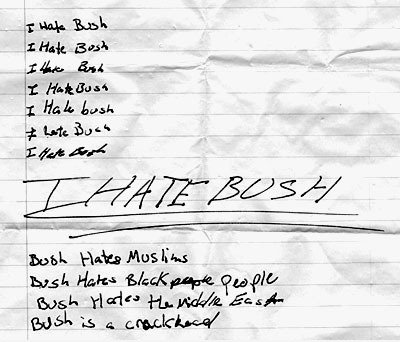 I Hate Bush
I Hate Bush
I Hate Bush
I Hate Bush
I Hate bush
I Hate Bush
I Hate Bush
I HATE BUSH
Bush Hates Muslims
Bush Hates Black people People
Bush Hates the Middle East
Bush is a crackhead